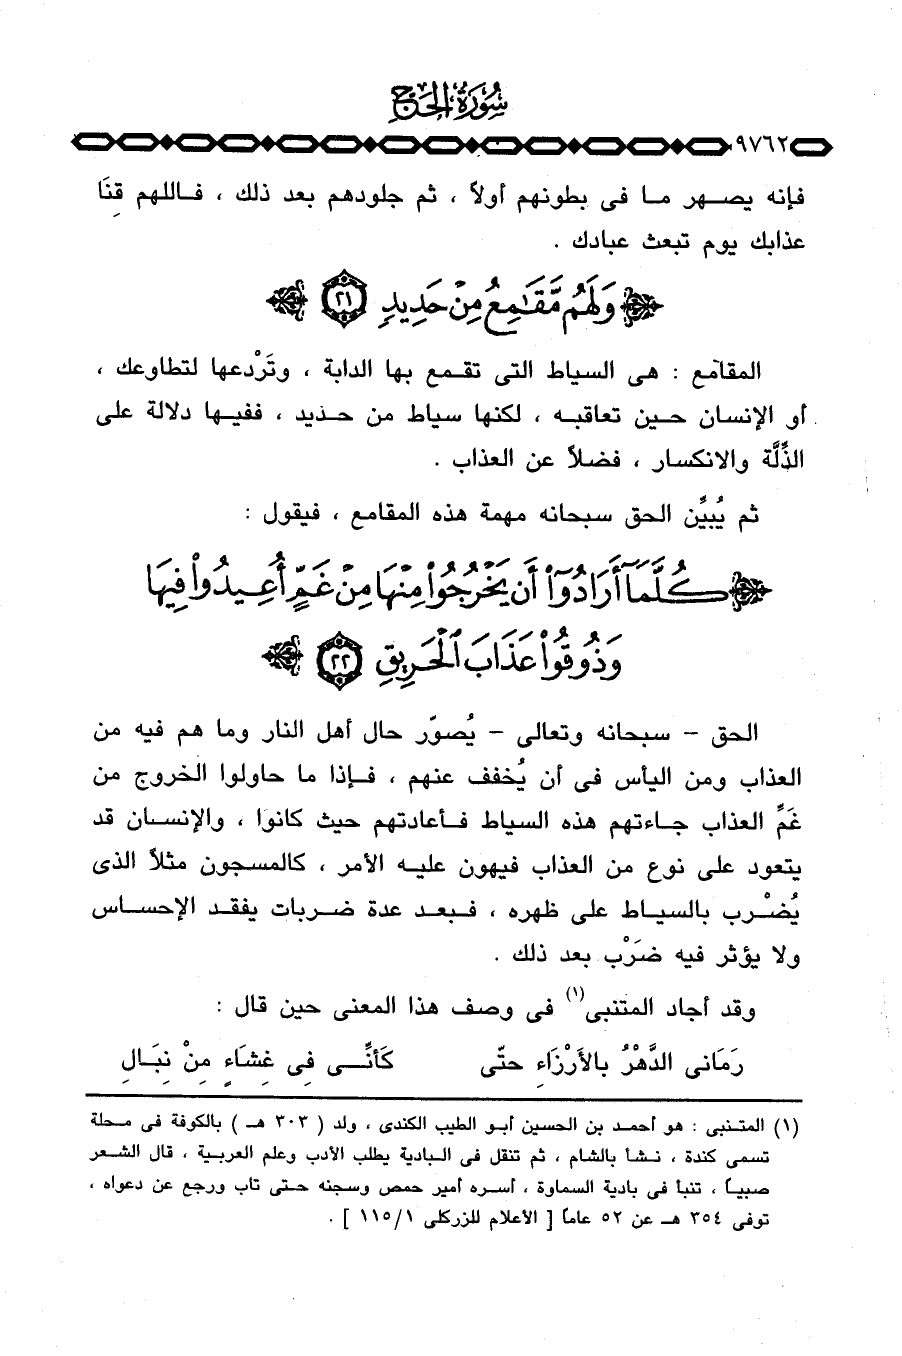 سُورَةُ الحَجِّ
٩٧٦٢
فإنه يصهر ما فى بطونهم أولاً ، ثم جلودهم بعد ذلك ، فاللهم قِنَا
عذابك يوم تبعث عبادك .
وَلَهُم مَّقَٰمِعُ مِنْ حَدِيدٍ ٢١
المقامع : هى السياط التى تقمع بها الدابة ، وتَرْدعها لتطاوعك ،
أو الإنسان حين تعاقبه ، لكنها سياط من حديد ، ففيها دلالة على
الذِّلَّة والانكسار ، فضلاً عن العذاب .
ثم يُبيِّن الحق سبحانه مهمة هذه المقامع ، فيقول :
كُلَّمَآ أَرَادُوٓا۟ أَن يَخْرُجُوا۟ مِنْهَا مِنْ غَمٍّ أُعِيدُوا۟ فِيهَا
وَذُوقُوا۟ عَذَابَ ٱلْحَرِيقِ ٢٢
الحق - سبحانه وتعالى - يُصوِّر حال أهل النار وما هم فيه من
العذاب ومن اليأس فى أن يُخفف عنهم ، فإذا ما حاولوا الخروج من
غَمِّ العذاب جاءتهم هذه السياط فأعادتهم حيث كانوا ، والإنسان قد
يتعود على نوع من العذاب فيهون عليه الأمر ، كالمسجون مثلاً الذى
يُضْرب بالسياط على ظهره ، فبعد عدة ضربات يفقد الإحساس
ولا يؤثر فيه ضَرْب بعد ذلك .
وقد أجاد المتنبى(١) فى وصف هذا المعنى حين قال :
رَمَانى الدَّهْرُ بالأَرْزَاءِ حتّى كَأنِّى فِى غِشَاءٍ مِنْ نِبَالِ
(١) المتنبى : هو أحمد بن الحسين أبو الطيب الكندى ، ولد ( ٣٠٣ هـ ) بالكوفة فى محلة
تسمى كندة ، نشأ بالشام ، ثم تنقل فى البادية يطلب الأدب وعلم العربية ، قال الشعر
صبياً ، تنبأ فى بادية السماوة ، أسره أمير حمص وسجنه حتى تاب ورجع عن دعواه ،
توفى ٣٥٤ هـ عن ٥٢ عاماً [ الأعلام للزركلى ١١٥/١ ] .